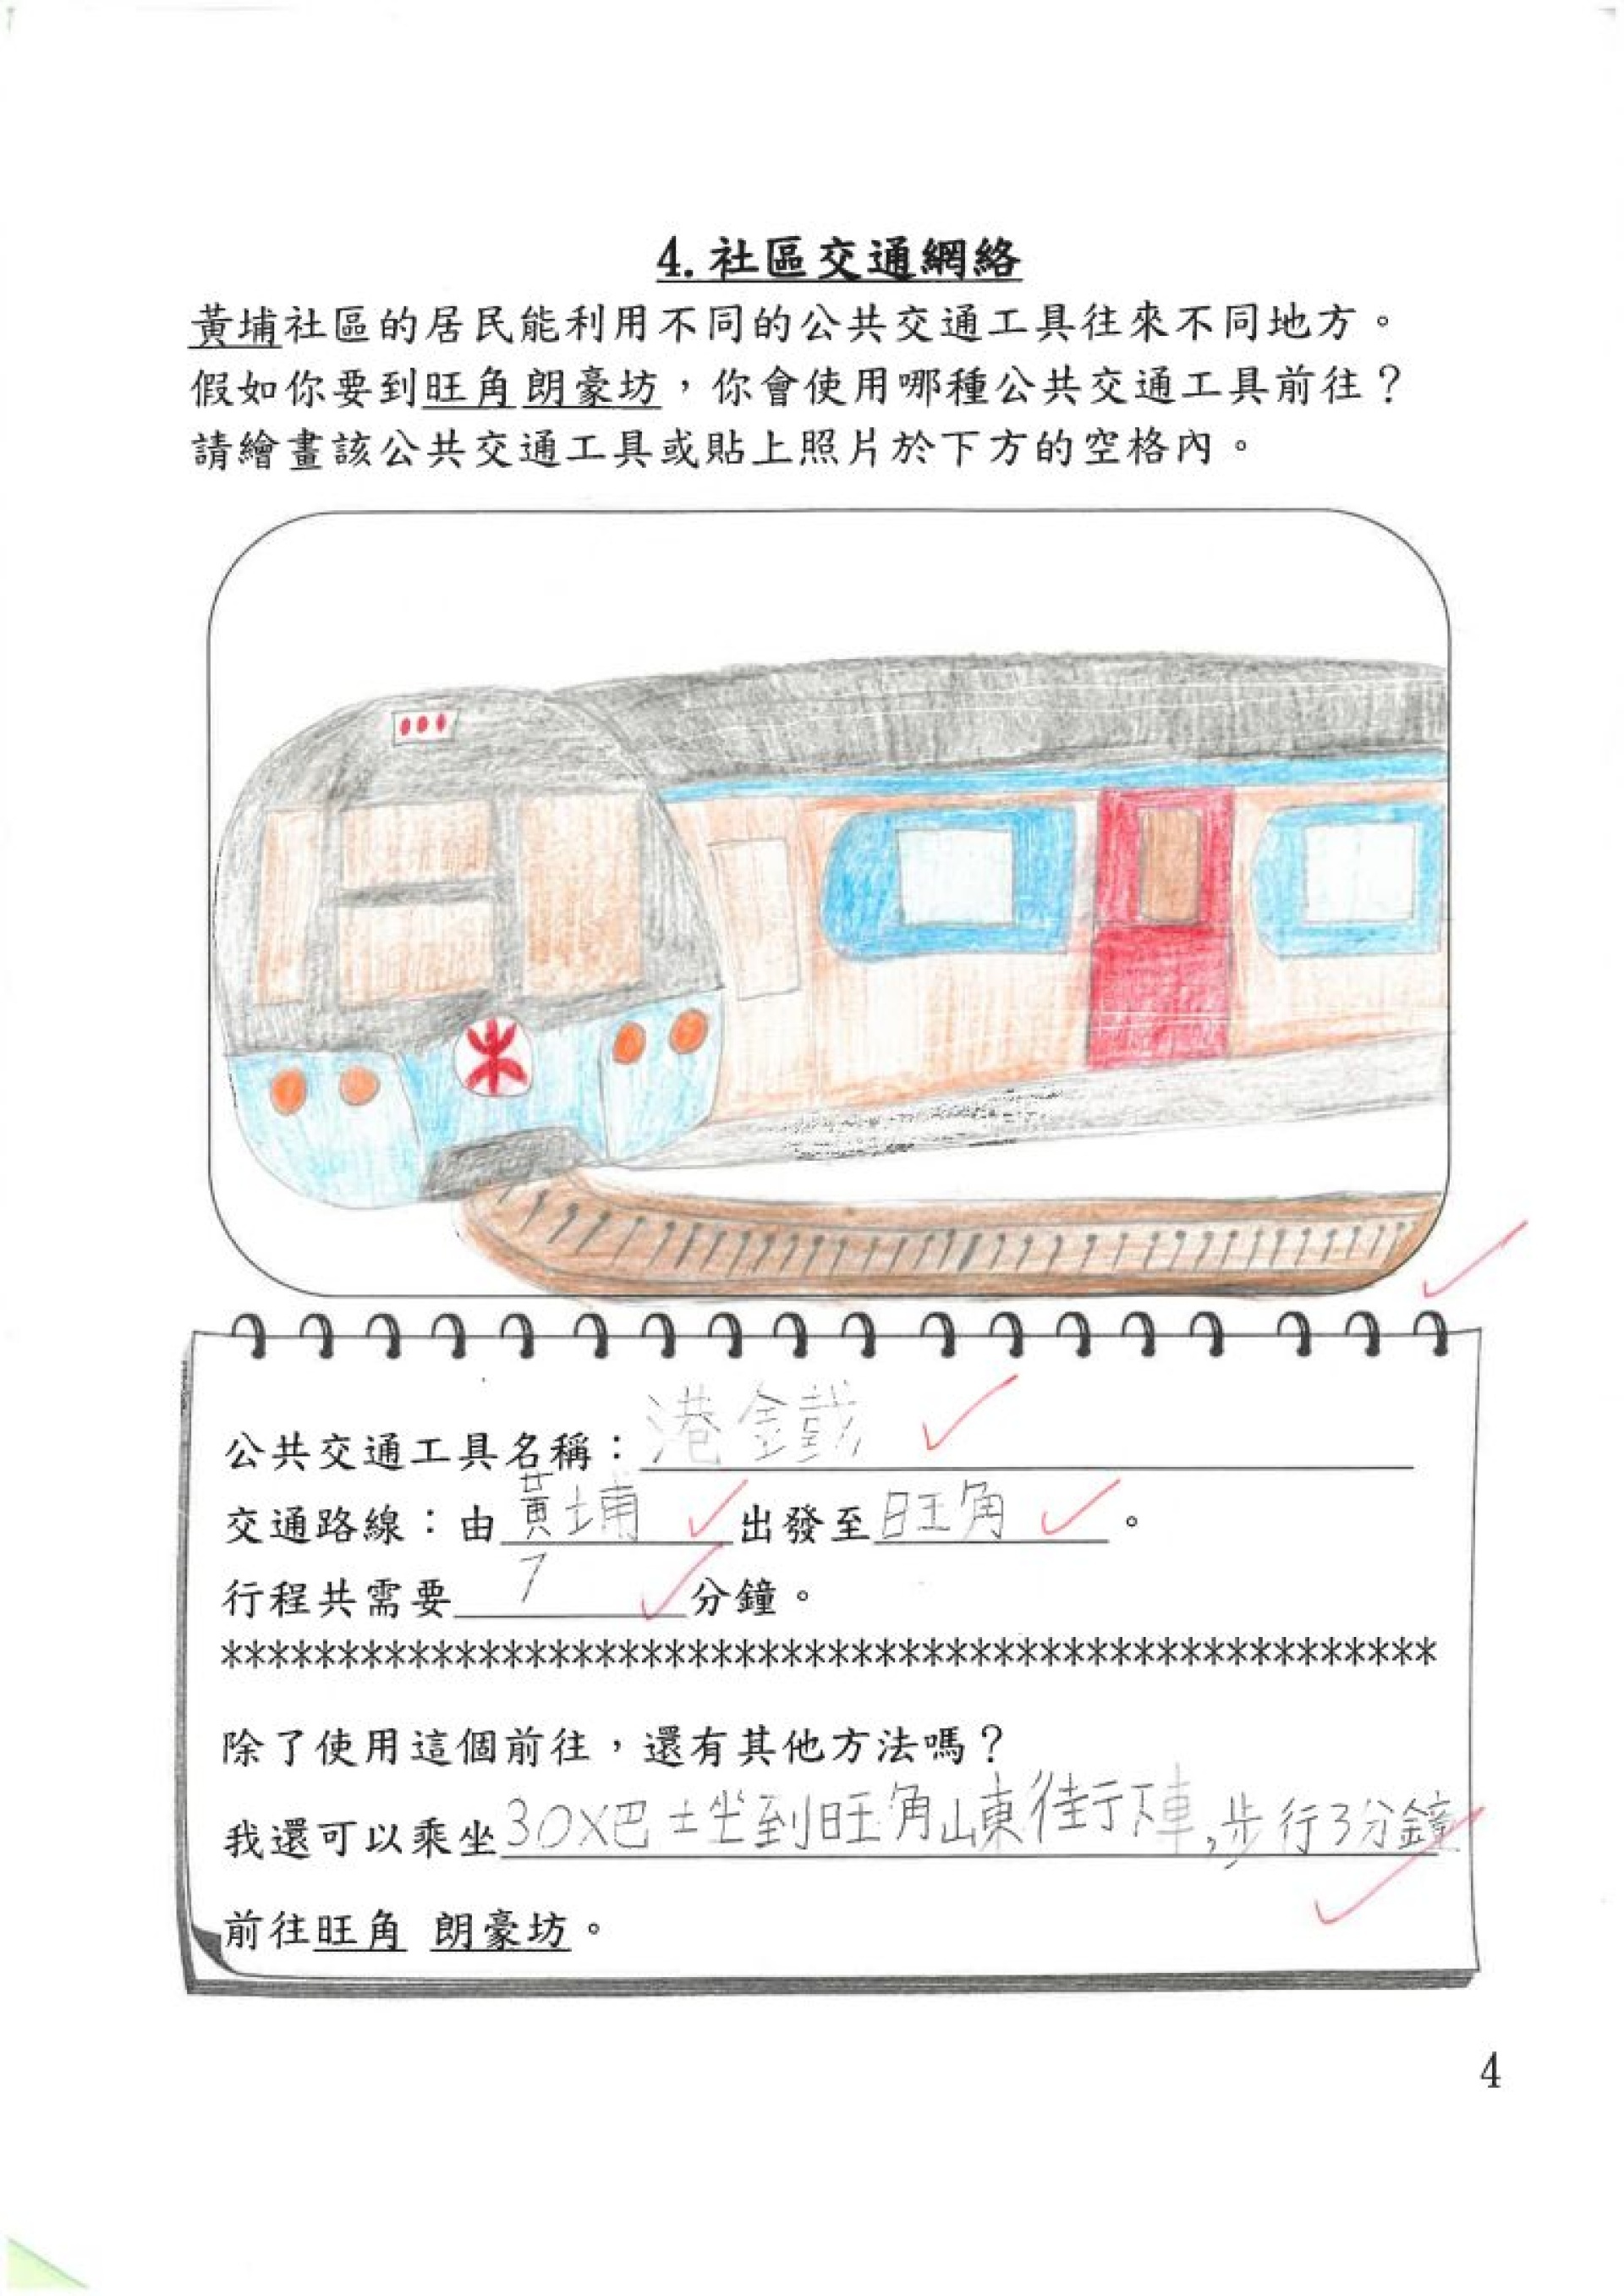 4. 社區交通網絡
黃埔社區的居民能利用不同的公共交通工具往來不同地方。
假如你要到旺角朗豪坊，你會使用哪種公共交通工具前往？
請繪畫該公共交通工具或貼上照片於下方的空格內。
公共交通工具名稱：港鐵
交通路線：由黃埔出發至旺角。
行程共需要7分鐘。
****************************************************
除了使用這個前往，還有其他方法嗎？
我還可以乘坐30X巴士坐到旺角山東街下車,步行3分鐘
前往旺角 朗豪坊。
4